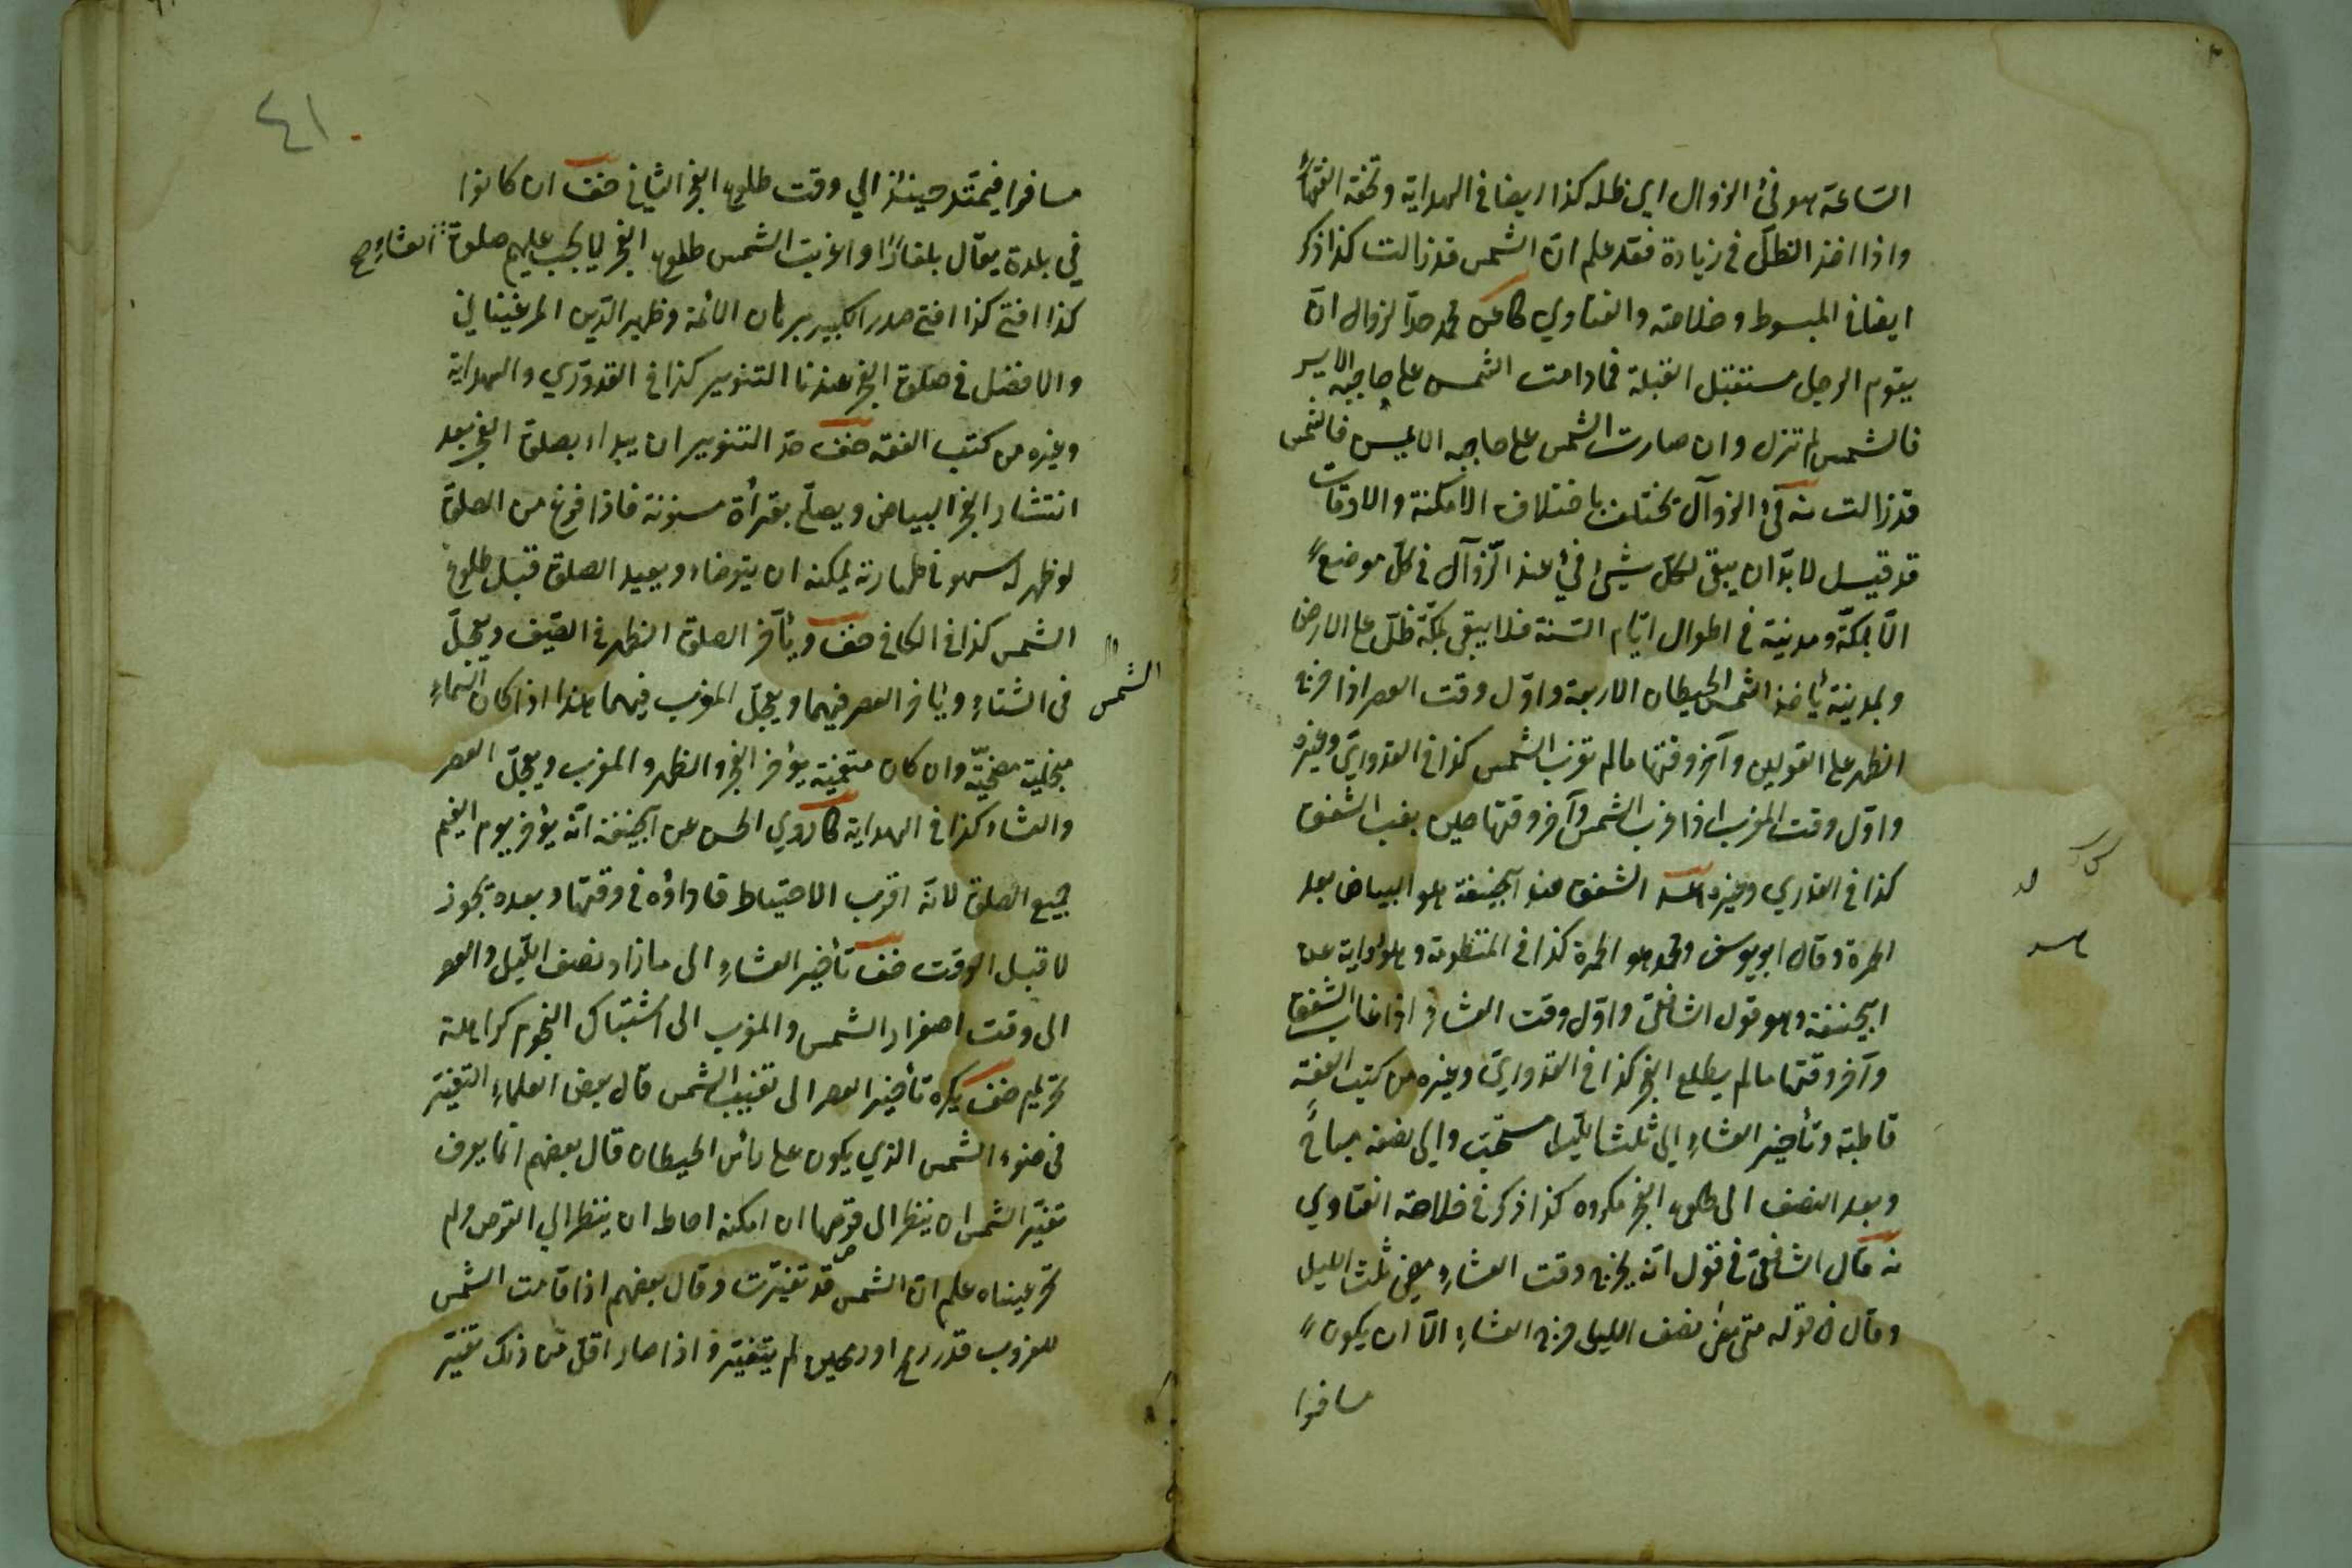 الساعة هو فئ الزوال اي ظله كذا ايضا في الهداية وتحفة الفقهاء
واذا اخذ الظل في زيادة فقد علم ان الشمس قد زالت كذا ذكر
ايضا في المبسوط وخلاصة والفتاوي كا عن محمد حد الزوال ان
يقوم الرجل مستقبل القبلة فمادامت الشمس على حاجبه الايسر
فالشمس لم تزل وان صارت الشمس على حاجبه الايمن فالشمس
قد زالت نه فئ الزوال يختلف باختلاف الامكنة والاوقات
قد قيل لا بد ان يبقى لكل شيئ فئ عند الزوال في كل موضع
الا بمكة ومدينة في اطوال ايام السنة فلا يبقى بمكة ظل على الارض
وبمدينة يأخذ الشمس الحيطان الاربعة واول وقت العصر اذا خرج
الظهر على القولين وآخر وقتها مالم تغرب الشمس كذا في القدوري وغيره
واول وقت المغرب اذا غرب الشمس وآخر وقتها حين يغب الشفق
كذا في القدري وغيره الشفق عند ابيحنيفة هو البياض بعد
الحمرة وقال ابو يوسف ومحمد هو الحمرة كذا في المنظومة وهو رواية عن
ابيحنيفة وهو قول الشافعي واول وقت العشاء اذا غاب الشفق
وآخر وقتها مالم يطلع الفجر كذا في القدوري وغيره من كتب الفقه
قاطبة وتأخير العشاء الي ثلث الليل مستحب والي نصفه مباح
وبعد النصف الى طلوع الفجر مكروه كذا ذكر في خلاصة الفتاوي
نه قال الشافعي في قول انه يخرج وقت العشاء مضى ثلث الليل
وقال في قوله متى مضى نصف الليل خرج العشاء الا ان يكون
مسافرا
٤١
مسافرا فيمتد حينئذ الي وقت طلوع الفجر الثاني خف ان كانوا
في بلدة يقال بلغار اذا غربت الشمس طلع الفجر لا يجب عليهم صلوة العشاء صح
كذا افتى كذا افتى صدر الكبير برهان الائمة وظهير الدين المرغيناني
والافضل في صلوة الفجر عندنا التنوير كذا في القدوري والهداية
وغيره من كتب الفقه خف حد التنوير ان يبداء بصلوة الفجر بعد
انتشار الفجر البياض ويصلي بقرأة مسنونة فاذا فرغ من الصلوة
لو ظهر له سهو في طهارته يمكنه ان يتوضاء ويعيد الصلوة قبل طلوع
الشمس
الشمس كذا في الكافي خف ويأخر الصلوة الظهر في الصيف ويعجل
في الشتاء ويأخر العصر فيهما ويعجل المغرب فيهما هذا اذا كان السماء
منجلية مضحية وان كان متغيمة يؤخر الفجر والظهر والمغرب ويعجل العصر
والعشاء كذا في الهداية كا روي الحسن عن ابيحنيفة انه يؤخر يوم الغيم
جميع الصلوة لانه اقرب الاحتياط فاداؤه في وقتها وبعده تجوز
لا قبل الوقت خف تأخير العشاء الى مازاد نصف الليل والعصر
الى وقت اصفرار الشمس والمغرب الى اشتباك النجوم كراهة
تحريم خف يكره تأخير العصر الى تغيب الشمس قال بعض العلماء التغير
في ضوء الشمس الذي يكون على رأس الحيطان قال بعضهم انما يعرف
تغير الشمس ان ينظر الى قرصها ان امكنه احاط ان ينظر الي القرص ولم
تحر عيناه علم ان الشمس قد تغيرت وقال بعضهم اذا قامت الشمس
للغروب قدر رمح او رمحين لم يتغير واذا صار اقل من ذلك تغير